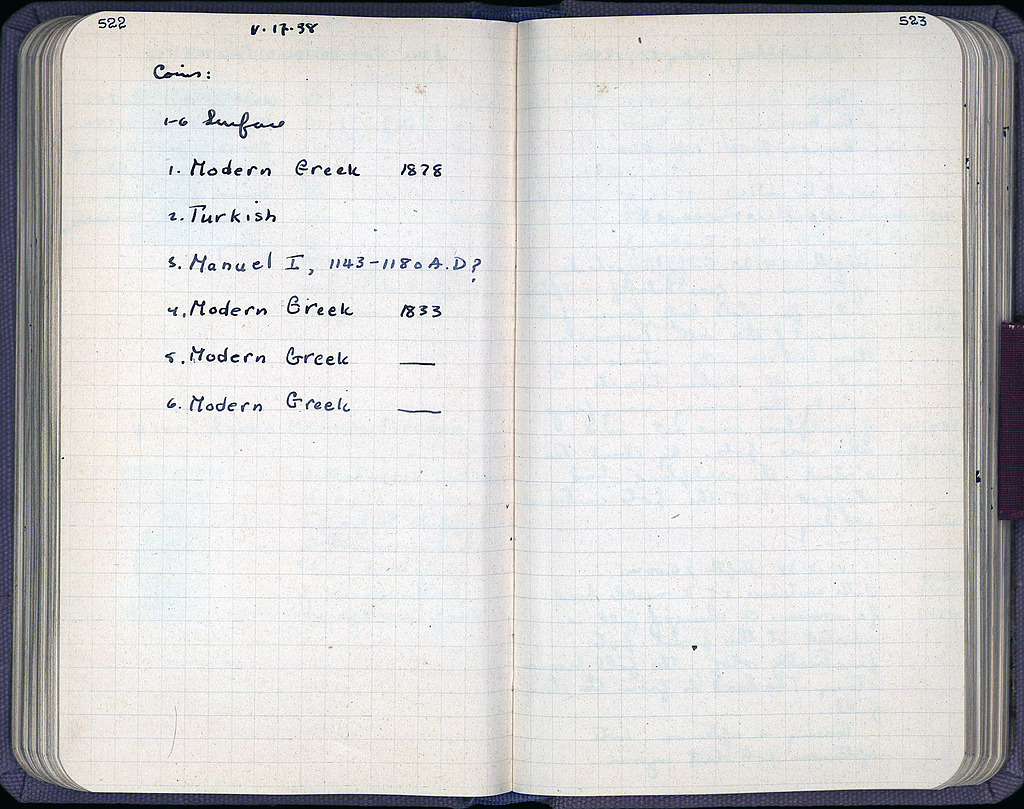 522
V·17·38
523
Coins:
1-6 Surface
1. Modern Greek 1878
2. Turkish
3. Manuel I, 1143-1180 A.D?
4. Modern Greek 1833
5. Modern Greek —
6. Modern Greek —